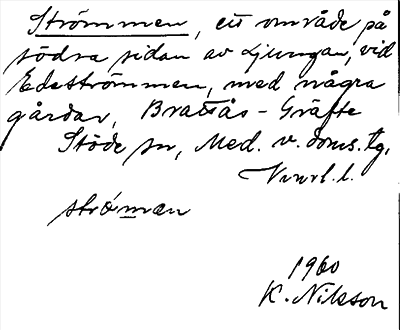 Strömmen, ett område på
södra sidan av Ljungan, vid
Edeströmmen, med några
gårdar, Brattås - Gräfte
Stöde sn, Med. v. doms. tg.
l.
strömæn
1960
K. Nilsson